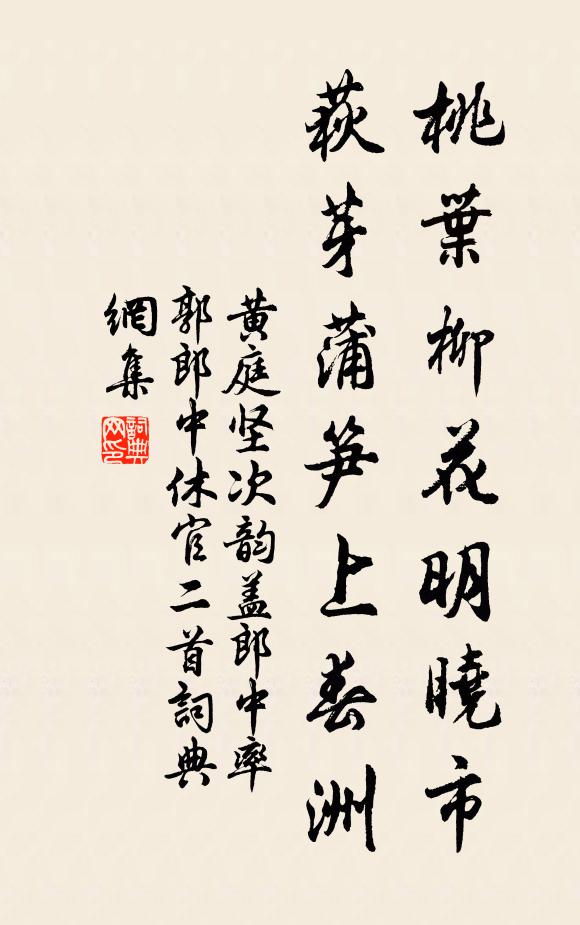 桃葉柳花明曉市
荻芽蒲笋上春洲
黄庭坚次韵盖郎中率
郭郎中休官二首詞典
網集
詞典网印